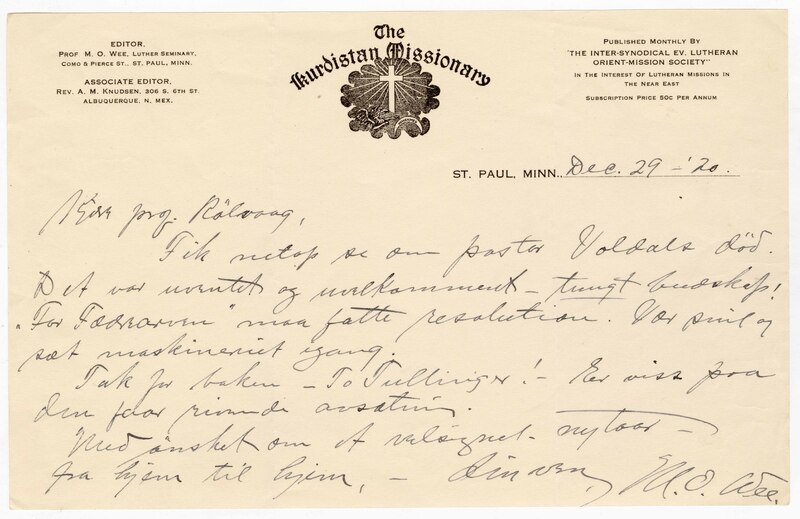 EDITOR,
PROF M. O. WEE, LUTHER SEMINARY,
COMO & PIERCE ST., ST. PAUL, MINN.
ASSOCIATE EDITOR,
REV. A. M. KNUDSEN, 306 S. 6TH ST.
ALBUQUERQUE, N. MEX.
The
Kurdistan Missionary
PUBLISHED MONTHLY BY
"THE INTER-SYNODICAL EV. LUTHERAN
ORIENT-MISSION SOCIETY"
IN THE INTEREST OF LUTHERAN MISSIONS IN
THE NEAR EAST
SUBSCRIPTION PRICE 50C PER ANNUM
ST. PAUL, MINN., Dec. 29 - '20.
Kjære prof. Rölvaag,
Fik netop se om pastor Voldals död.
Det var uventet og uvelkomment - tungt budskap!
"For Fædrearven" maa fatte resolution. Vær snil og
sæt maskineriet igang.
Tak for boken - To Tullinger! - Er viss paa
den faar rivende avsætning.
Med ønsket om et velsignet nytaar -
fra hjem til hjem, - Din ven, M. O. Wee.